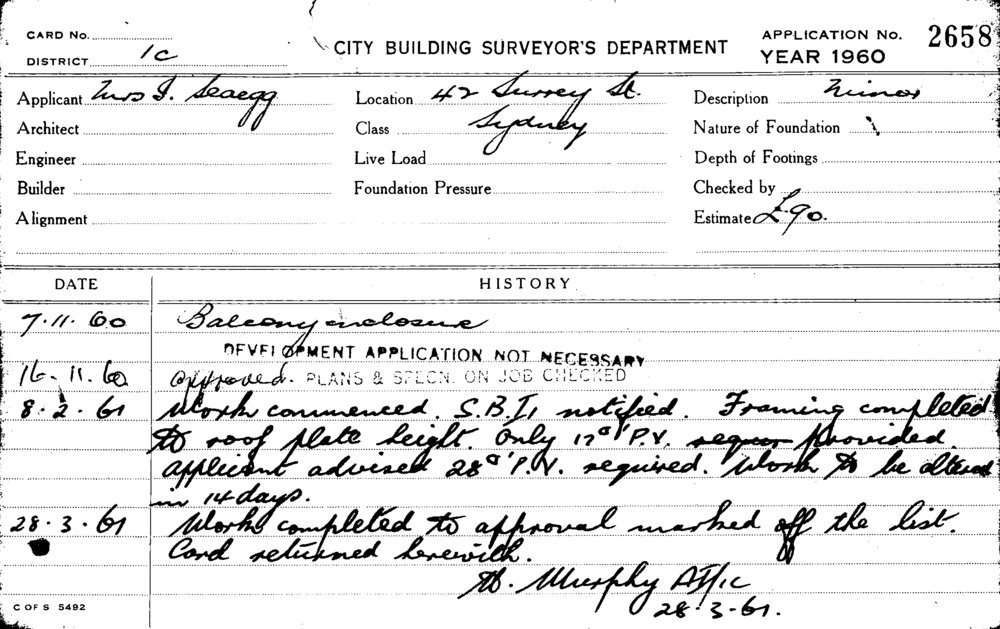 CARD No.
DISTRICT 1C
CITY BUILDING SURVEYOR'S DEPARTMENT
APPLICATION No. 2658
YEAR 1960
Applicant Mrs I. Seaegg
Architect
Engineer
Builder
Alignment
Location 42 Surrey St.
Class Sydney
Live Load
Foundation Pressure
Description Minor
Nature of Foundation
Depth of Footings
Checked by
Estimate £90.
DATE HISTORY
7.11.60 Balcony enclosure
DEVELOPMENT APPLICATION NOT NECESSARY
16.11.60 Approved. PLANS & SPECN. ON JOB CHECKED
8.2.61 Work commenced. S.B.I. notified. Framing completed
to roof plate height. Only 17□' P.V. provided.
Applicant advised 28□' P.V. required. Work to be altered
in 14 days.
28.3.61 Work completed to approval marked off the list.
Card returned herewith.
Murphy
28.3.61.
C OF S 5492